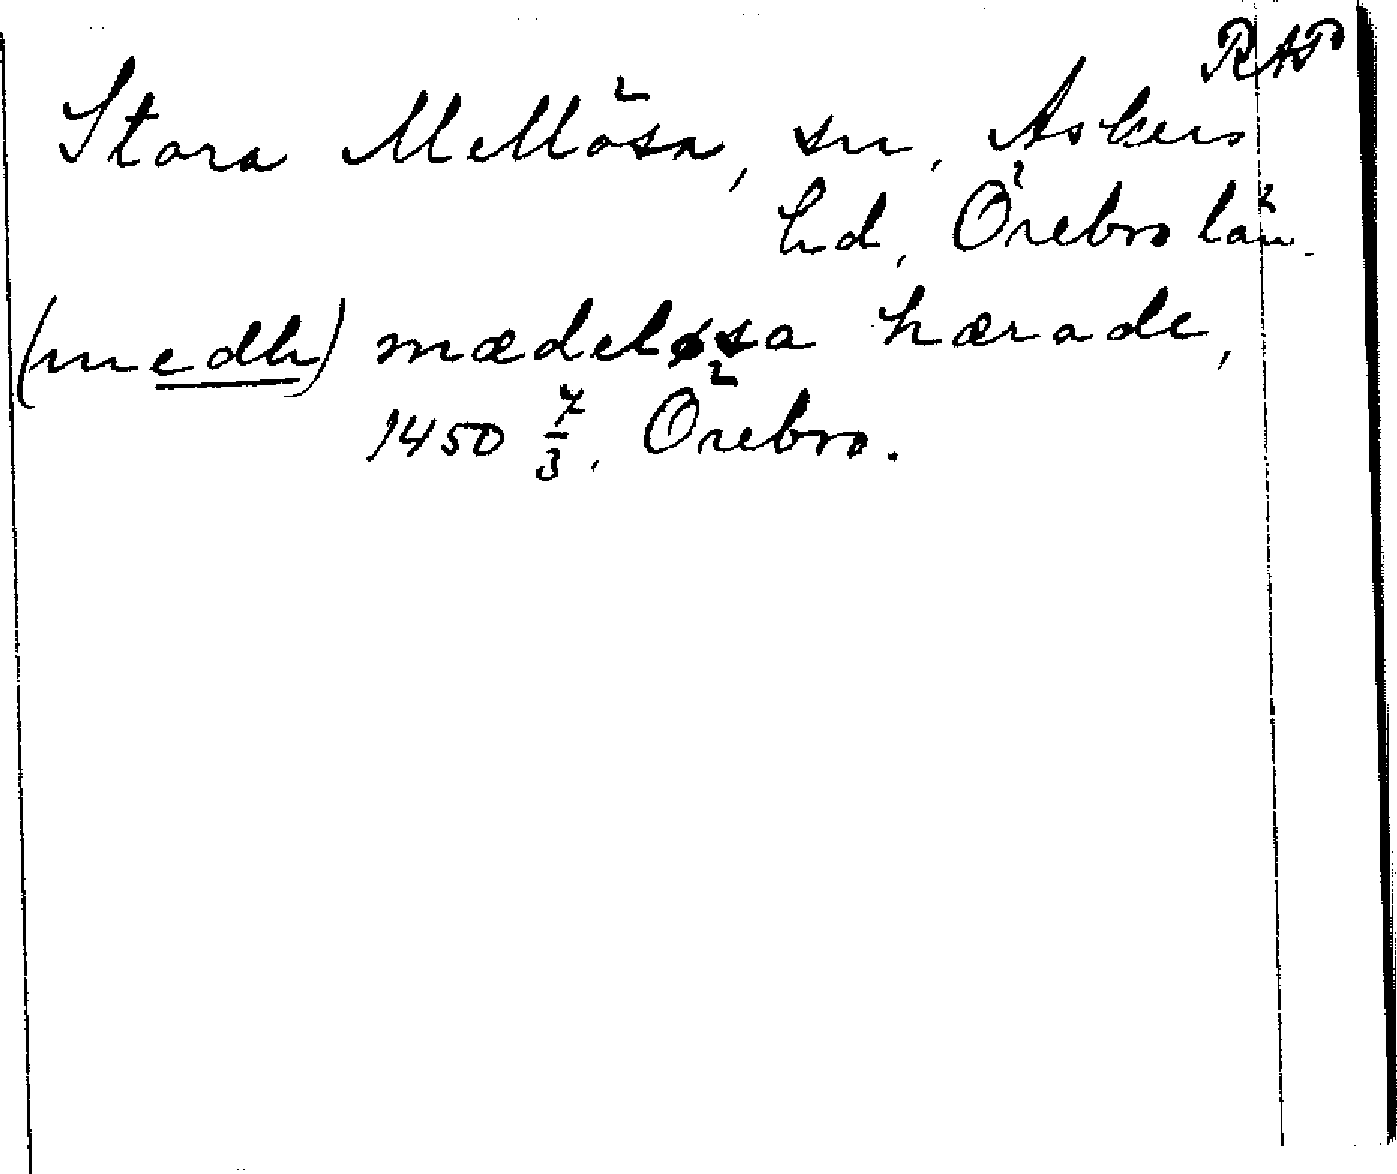 RAP
Stora Mellösa, sn, Askers
hd, Örebro län.
(medh) mædeløsa hærade,
1450 7/3, Örebro.